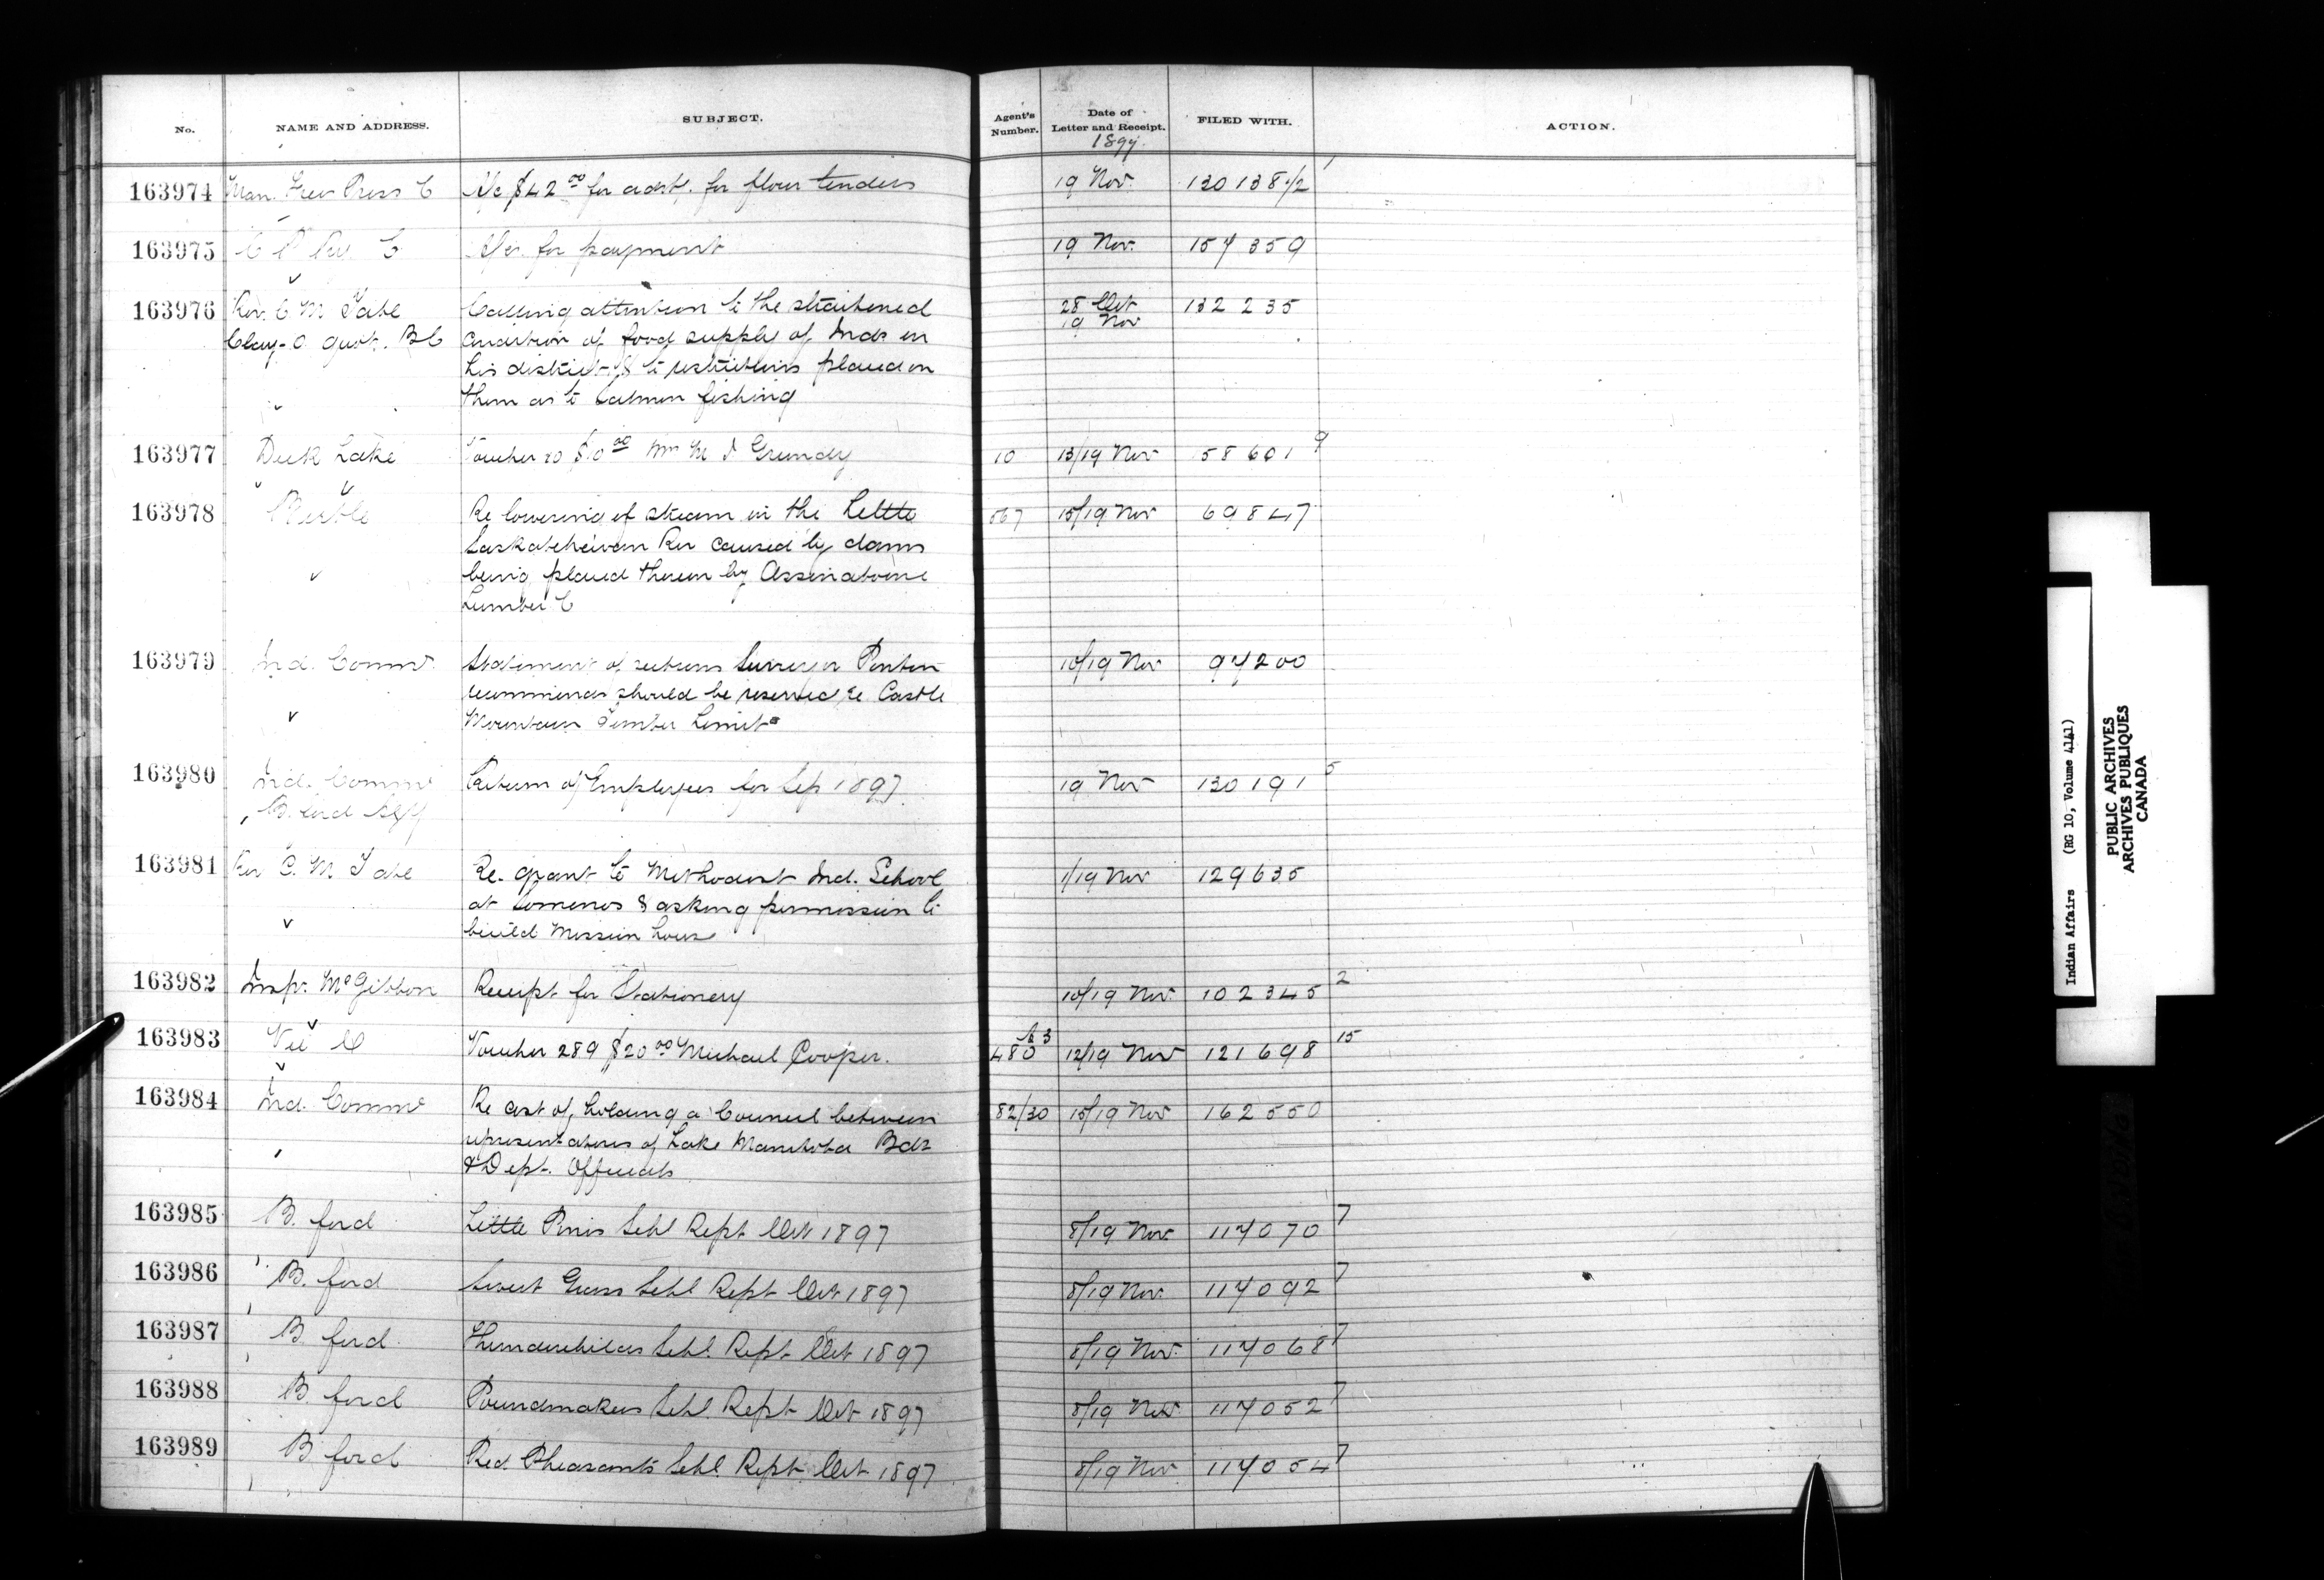 No. NAME AND ADDRESS. SUBJECT. Agent's Number. Date of Letter and Receipt. 1897. FILED WITH. ACTION.
163974 Man. Free Press C A/c $42 00 for advt. for flour tenders 19 Nov. 130138 1/2 1
163975 C P Ry. C for payment 19 Nov. 157359
163976 Rev. C M Tate Calling attention to the straitened 28 Oct 132235
B C condition of food supply of Inds in 19 Nov
his district & to restrictions placed on
them as to Salmon fishing
163977 Duck Lake Voucher 20 Mrs M J Grundy 10 13/19 Nov 58601 9
163978 Birtle Re lowering of stream in the Little 567 15/19 Nov 69847
Saskatchewan Rvr caused by dams
being placed therein by Assinaboine
Lumber C
163979 Ind. Commr. Statement of sections Surveyor Ponton 10/19 Nov 97200
recommends should be reserved re Castle
Mountain Timber Limit
163980 Ind. Commr Return of Employees for Sep 1897. 19 Nov 130191 5
B. ford Agy
163981 Rev C. M. Tate Re. grant to Methodist Ind. School 1/19 Nov 129635
at Somenos & asking permission to
build Mission house
163982 Insp. McGibbon Receipt for Stationery 10/19 Nov. 102345 2
163983 Vic Voucher 289 $20 00 Michael Cooper. 480 12/19 Nov 121698 15
163984 Ind. Commr Re cost of holding a Council between 82/30 15/19 Nov 162550
representatives of Lake Manitoba Bds
& Dept. Officials
163985 B. ford Little Pines Schl Rept Oct 1897 8/19 Nov. 117070 7
163986 B. ford Sweet Grass Schl Rept Oct 1897 8/19 Nov. 117092 7
163987 B. ford. Thunderchilds Schl. Rept Oct 1897 8/19 Nov. 117068 7
163988 B. ford Poundmakers Schl. Rept Oct 1897 8/19 Nov. 117052 7
163989 B ford Red Pheasants Schl. Rept. Oct 1897 8/19 Nov 117054 7
Indian Affairs (RG 10, Volume 4141)
PUBLIC ARCHIVES
ARCHIVES PUBLIQUES
CANADA